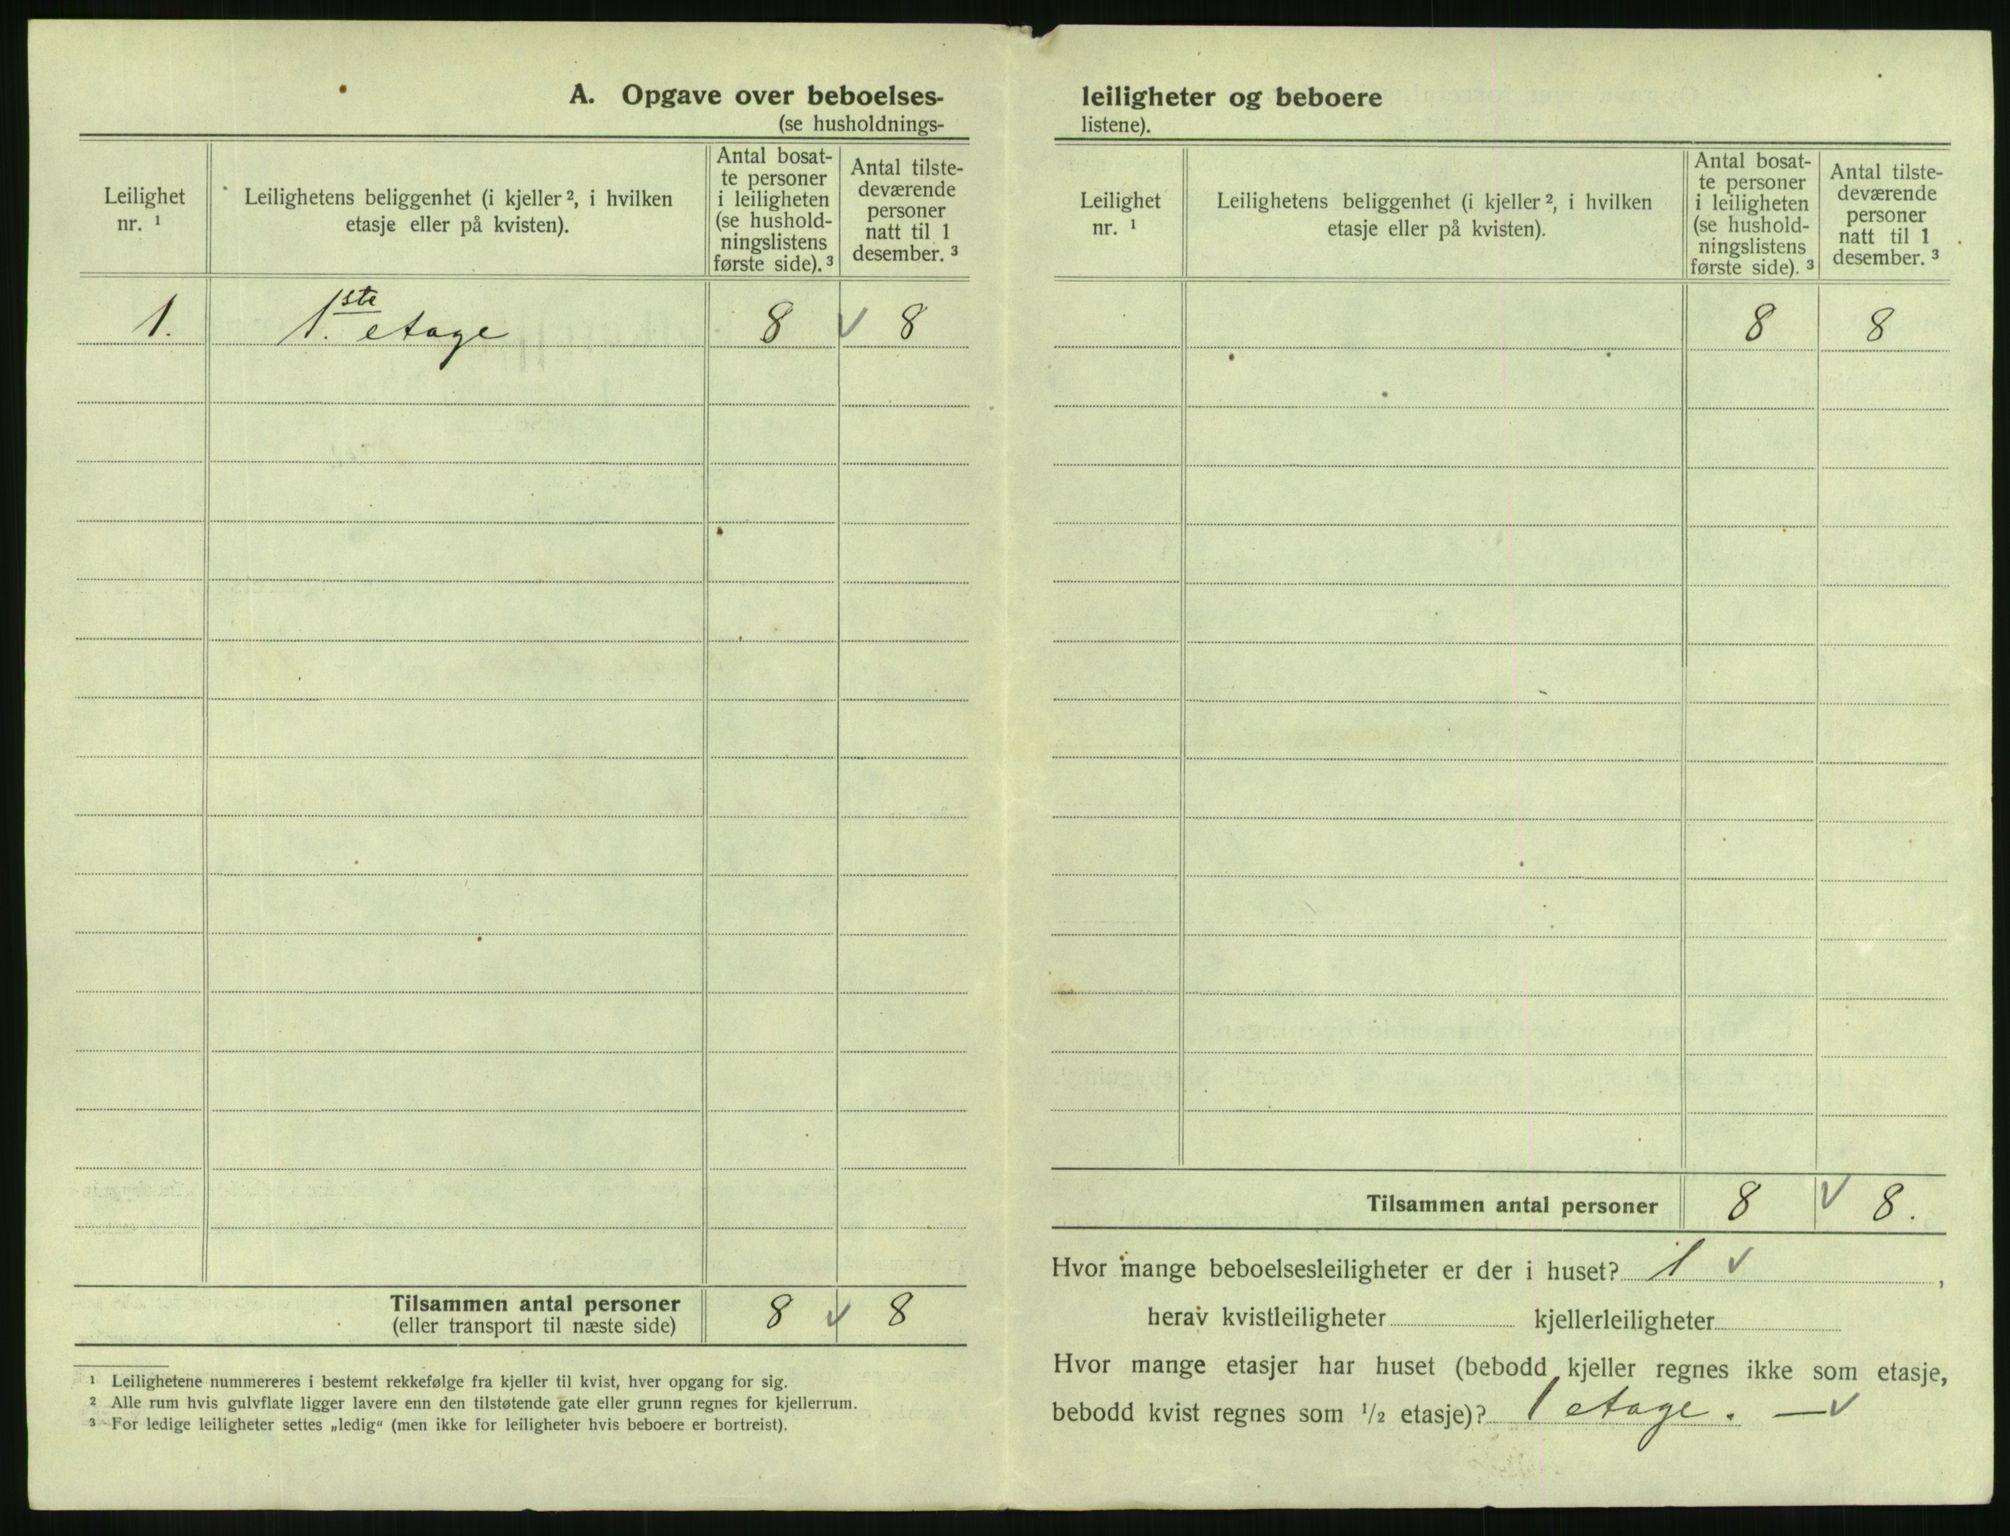 A. Opgave over beboelses-
(se husholdnings-
Leilighet
nr. ¹
Leilighetens beliggenhet (i kjeller ², i hvilken
etasje eller på kvisten).
Antal bosat-
te personer
i leiligheten
(se hushold-
ningslistens
første side). ³
Antal tilste-
deværende
personer
natt til 1
desember. ³
1. 1ste etage 8 ✓ 8
Tilsammen antal personer 8 ✓ 8
(eller transport til næste side)
¹ Leilighetene nummereres i bestemt rekkefølge fra kjeller til kvist, hver opgang for sig.
² Alle rum hvis gulvflate ligger lavere enn den tilstøtende gate eller grunn regnes for kjellerrum.
³ For ledige leiligheter settes „ledig“ (men ikke for leiligheter hvis beboere er bortreist).
leiligheter og beboere
listene).
Leilighet
nr. ¹
Leilighetens beliggenhet (i kjeller ², i hvilken
etasje eller på kvisten).
Antal bosat-
te personer
i leiligheten
(se hushold-
ningslistens
første side). ³
Antal tilste-
deværende
personer
natt til 1
desember. ³
8 8
Tilsammen antal personer 8 ✓ 8.
Hvor mange beboelsesleiligheter er der i huset? 1 ✓ ,
herav kvistleiligheter kjellerleiligheter
Hvor mange etasjer har huset (bebodd kjeller regnes ikke som etasje,
bebodd kvist regnes som ¹/₂ etasje)? 1 etage. — ✓